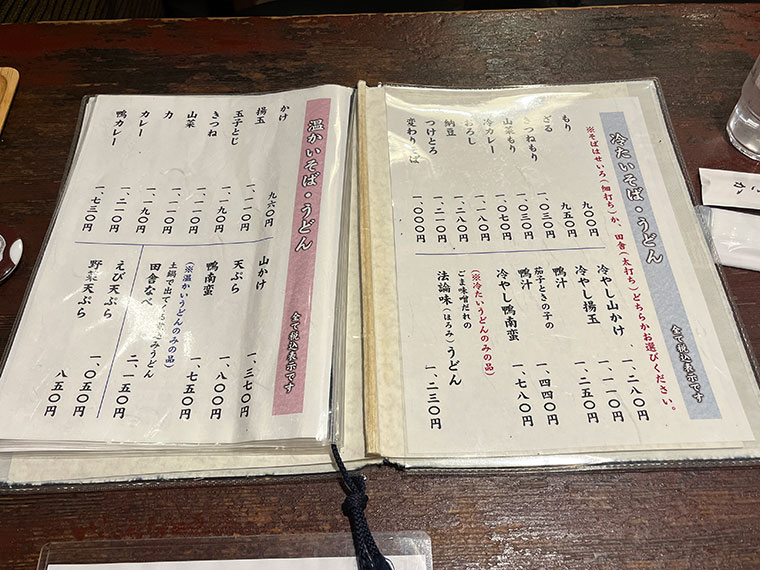 冷たいそば・うどん 全て税込表示です
※そばはせいろ(細打ち)か、田舎(太打ち)どちらかお選びください。
もり 九〇〇円
ざる 九五〇円
きつねもり 一、〇三〇円
山菜もり 一、〇三〇円
冷カレー 一、〇七〇円
おろし 一、一八〇円
納豆 一、二八〇円
つけとろ 一、二一〇円
変わりそば 一、〇〇〇円
冷やし山かけ 一、二八〇円
冷やし揚玉 一、一一〇円
鴨汁 一、二五〇円
茄子ときの子の
鴨汁 一、四四〇円
冷やし鴨南蛮 一、七八〇円
(※冷たいうどんのみの品)
ごま味噌だれの
法論味(ほろみ)うどん 一、二三〇円
温かいそば・うどん 全て税込表示です
かけ 九六〇円
揚玉
玉子とじ
きつね
山菜
力
カレー 一、二一〇円
鴨カレー 一、七三〇円
山かけ 一、三七〇円
天ぷら 一、八〇〇円
鴨南蛮 一、七五〇円
(※温かいうどんのみの品)
土鍋で出てくる煮込みうどん
田舎なべ 二、一五〇円
えび天ぷら 一、〇五〇円
野菜天ぷら 八五〇円